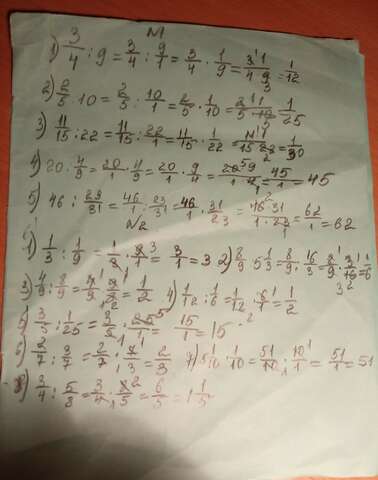 N1
1) 3/4 : 9 = 3/4 : 9/1 = 3/4 · 1/9 = 3·1/4·9 = 1/12
2) 2/5 · 10 = 2/5 : 10/1 = 2/5 · 1/10 = 2·1/5·10 = 1/25
3) 11/15 : 22 = 11/15 : 22/1 = 11/15 · 1/22 = 11·1/15·22 = 1/30
4) 20 · 4/9 = 20/1 · 4/9 = 20/1 · 9/4 = 20·9/1·4 = 45/1 = 45
5) 46 : 23/31 = 46/1 : 23/31 = 46/1 · 31/23 = 46·31/1·23 = 62/1 = 62
N2
1) 1/3 : 1/9 = 1/3 · 9/1 = 3/1 = 3 2) 8/9 : 5 1/3 = 8/9 : 16/3 = 8/9 · 3/16 = 1/6
3) 4/9 : 8/9 = 4/9 · 9/8 = 1/2 4) 1/12 : 1/6 = 1/12 · 6/1 = 1/2
5) 3/5 : 1/25 = 3/5 · 25/1 = 15/1 = 15
6) 2/7 : 3/7 = 2/7 · 7/3 = 2/3 7) 5 1/10 : 1/10 = 51/10 · 10/1 = 51/1 = 51
8) 3/4 : 5/8 = 3/4 · 8/5 = 6/5 = 1 1/5